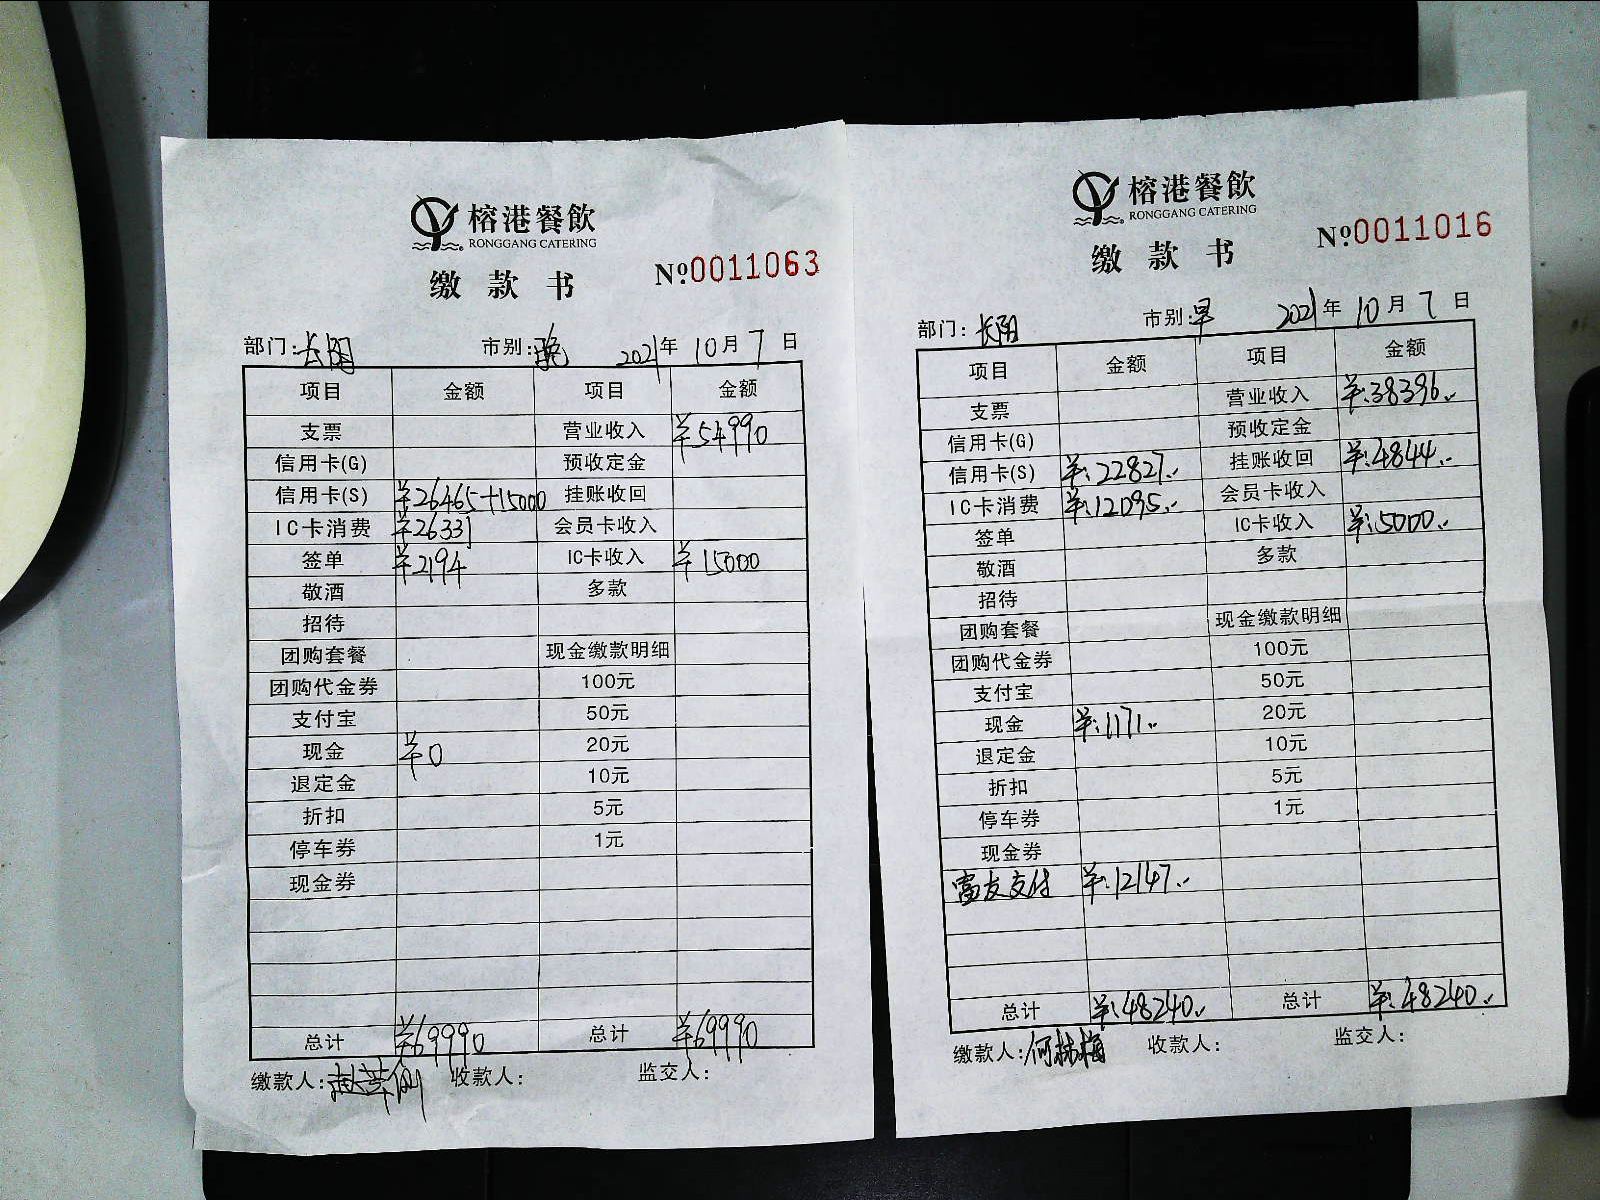 榕港餐飲
RONGGANG CATERING
缴款书
№0011063
部门:长阳 市别:晚 2021年10月7日
项目 金额 项目 金额
支票 营业收入 ¥54990
信用卡(G) 预收定金
信用卡(S) ¥26465+15000 挂账收回
IC卡消费 ¥26331 会员卡收入
签单 ¥2194 IC卡收入 ¥15000
敬酒 多款
招待
团购套餐 现金缴款明细
团购代金券 100元
支付宝 50元
现金 ¥0 20元
退定金 10元
折扣 5元
停车券 1元
现金券
总计 ¥69990 总计 ¥69990
缴款人: 收款人: 监交人:
榕港餐飲
RONGGANG CATERING
缴款书
№0011016
部门:长阳 市别:早 2021年10月7日
项目 金额 项目 金额
支票 营业收入 ¥:38396..
信用卡(G) 预收定金
信用卡(S) ¥:22827.. 挂账收回 ¥:4844..
IC卡消费 ¥:12095.. 会员卡收入
签单 IC卡收入 ¥:5000..
敬酒 多款
招待
团购套餐 现金缴款明细
团购代金券 100元
支付宝 50元
现金 ¥:1171.. 20元
退定金 10元
折扣 5元
停车券 1元
现金券
富友支付 ¥:12147..
总计 ¥:48240.. 总计 ¥:48240..
缴款人:何林梅 收款人: 监交人: